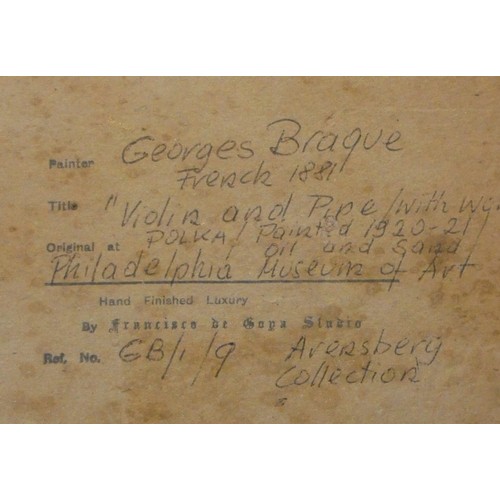 Painter Georges Braque
French 1881
Title "Violin and Pipe/with
POLKA/ Painted 1920-21
Original at oil and Sand
Philadelphia Museum of Art
Hand Finished Luxury
By Francisco de Goya Studio
Ref. No. GB/1/9 Arensberg
Collection